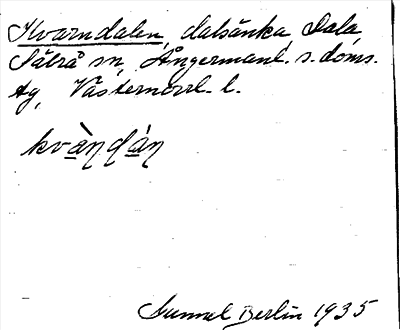 Kvarndalen, dalsänka, Dala,
Sätrå sn, Ångermanl. s. doms.
tg, Västernorrl. l.
kvàṇḍáṇ
Gunnel Berlin 1935